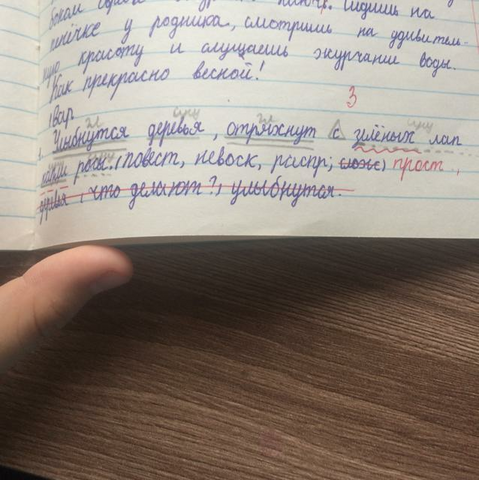 пенёчке у родника, смотришь на удивитель-
ную красоту и слушаешь журчание воды.
Как прекрасно весной!
3
I вар
гл сущ гл сущ
1. Улыбнутся деревья, отряхнут с зелёных лап
капли росы. (повест, невоск, распр, слож) прост,
деревья, что делают?, улыбнутся.